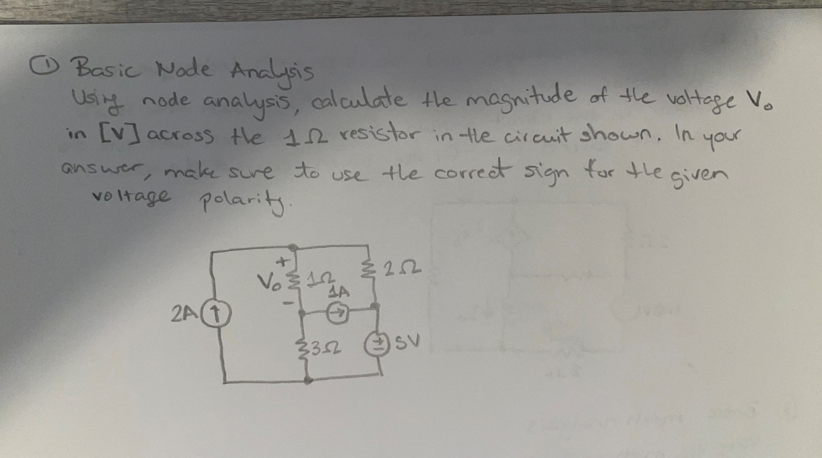 ① Basic Node Analysis
Using node analysis, calculate the magnitude of the voltage V₀
in [V] across the 1Ω resistor in the circuit shown. In your
answer, make sure to use the correct sign for the given
voltage polarity.
+
V₀ 1Ω 2Ω
-
1A
2A
3Ω
± 5V